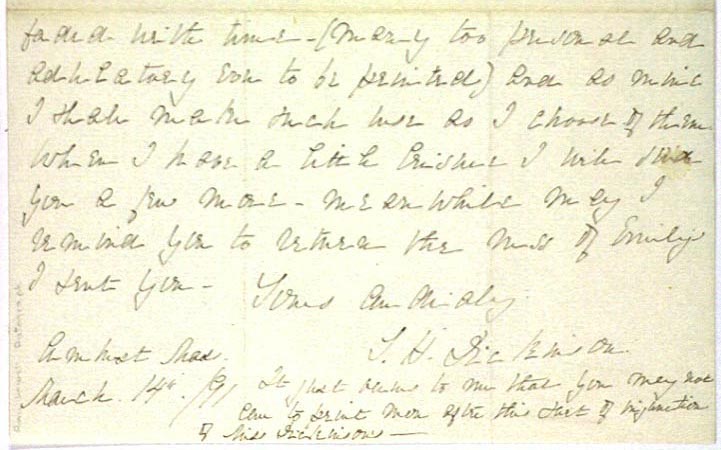 faded with time - (many too personal and
adulatory ever to be printed) and as mine
I shall make such use as I choose of them.
When I have a little leisure I will send
you a few more - meanwhile may I
remind you to return the mss of Emily's
I sent you -
Yours cordially
S. H. Dickinson.
Amherst Mass.
March. 14th. /91
It just occurs to me that you may not
care to print more after this sort of injunction
of Miss Dickinsons -